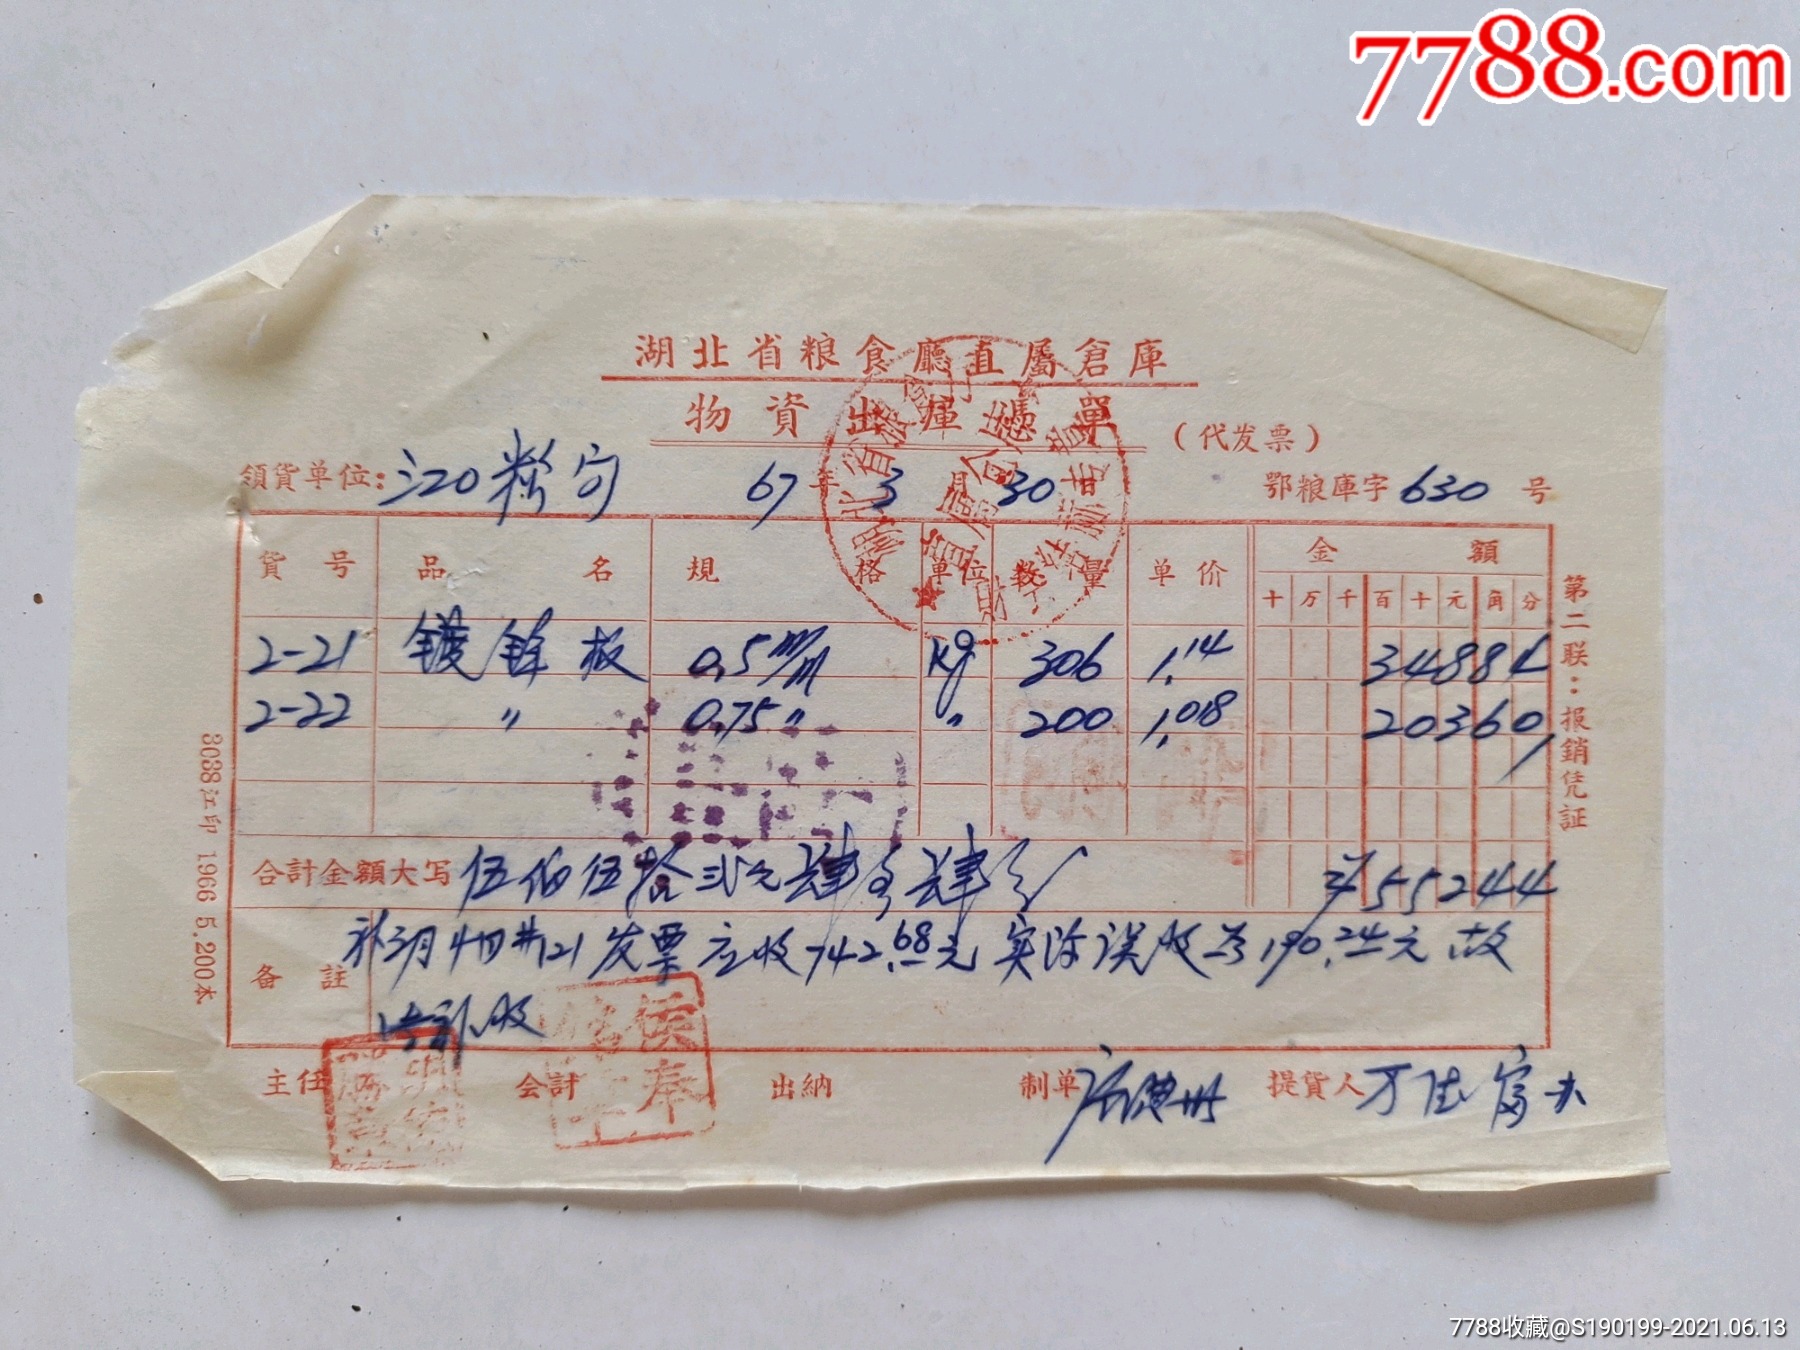 7788.com
湖北省粮食廳直屬倉庫
物資出庫憑單
(代发票)
領貨单位: 67年3月30 鄂粮庫字630号
貨号 品名 規格 單位 数量 单价 金額
十万千百十元角分
2-21 镀锌板 0.5m/m kg 306 1.14 34884
2-22 〃 0.75〃 〃 200 1.018 20360
合計金額大写 伍佰伍拾弍元肆角肆分 55244
备註 补3月 发票应收742.68元实际误收为190.24元故
补收
主任 会計 出納 制单 提貨人
第二联:报銷凭証
3038江印 1966 5.200本
7788收藏@S190199-2021.06.13